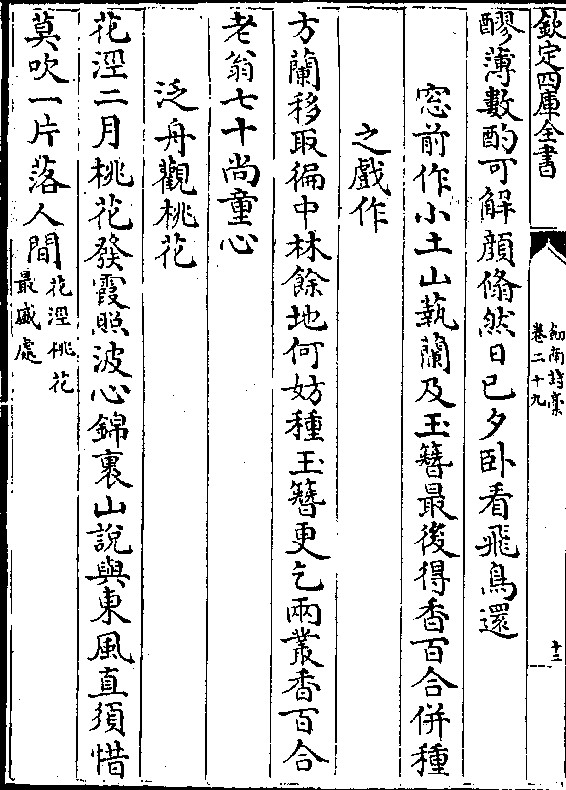 欽定四庫全書
劒南詩稾
卷二十九
十二
醪薄數酌可解顔翛然日已夕卧看飛鳥還
窓前作小土山蓺蘭及玉簪最後得香百合併種
之戲作
方蘭移取徧中林餘地何妨種玉簪更乞兩叢香百合
老翁七十尚童心
泛舟觀桃花
花涇二月桃花發霞照波心錦裹山說與東風直須惜
莫吹一片落人間花涇桃花
最盛處